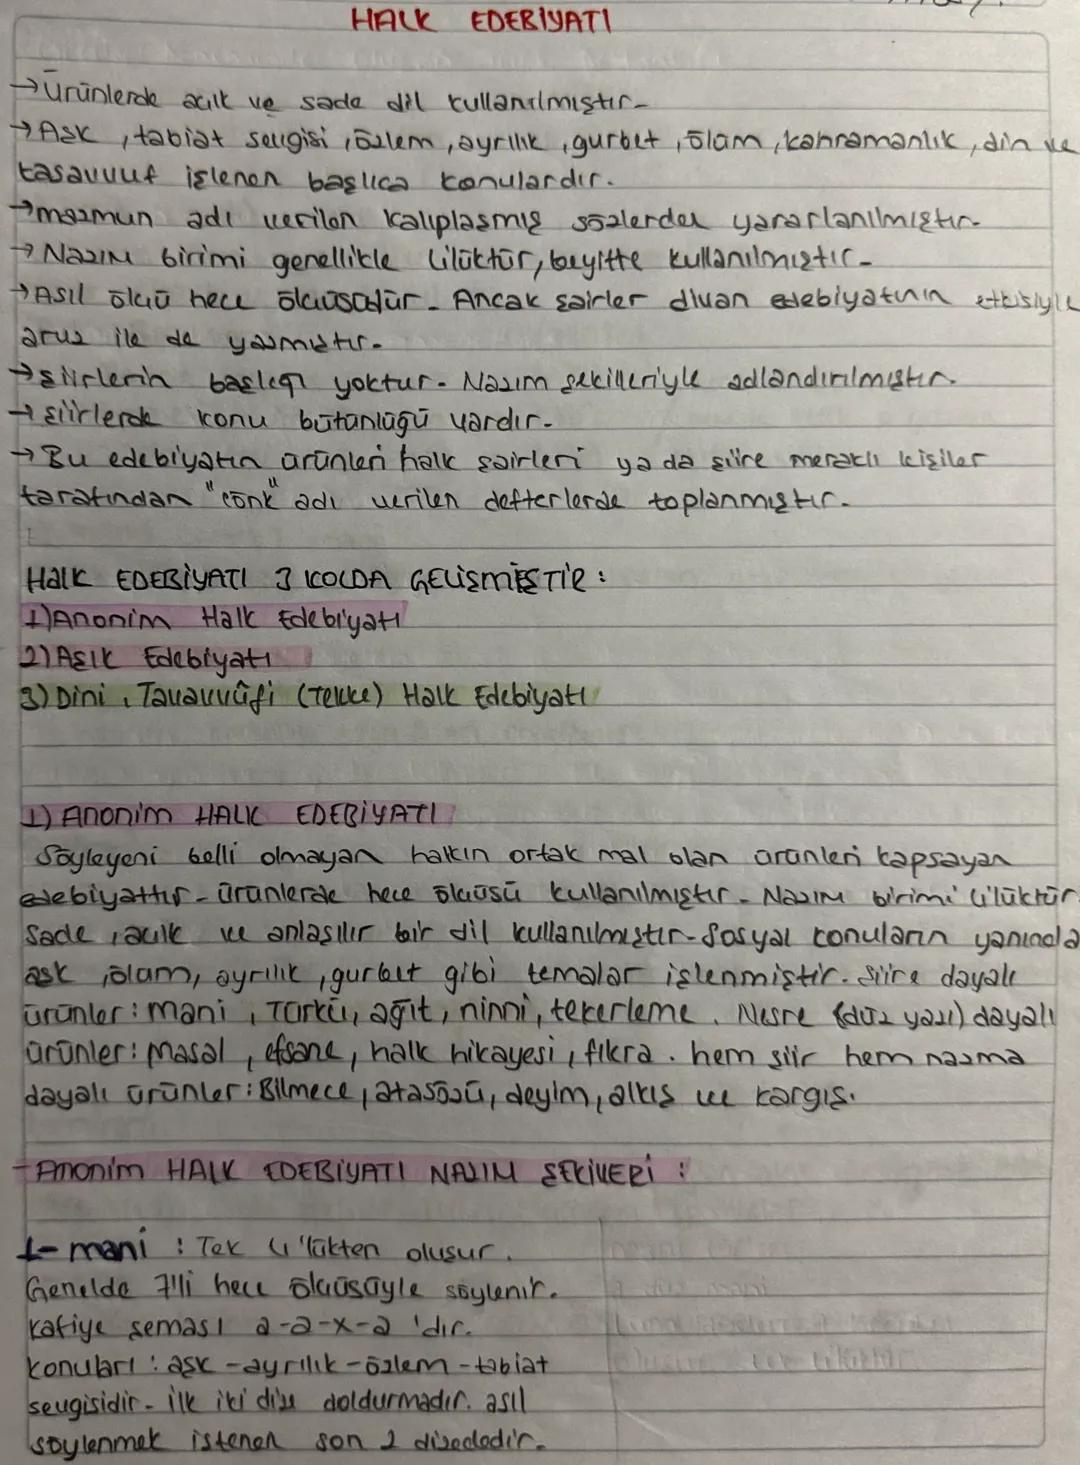 HALK EDEBİYATI
→Ürünlerde açık ve sade dil kullanılmıştır-
→Aşk, tabiat sevgisi, özlem, ayrılık, gurbet, ölüm, kahramanlık, din ve
tasavvuf işlenen başlıca konulardır.
→mazmun adı verilen kalıplaşmış sözlerden yararlanılmıştır-
→Nazım birimi genellikle 4'lüktür, beyitte kullanılmıştır-
→Asıl ölçü hece ölçüsüdür- Ancak şairler divan edebiyatının etkisiyle
aruz ile de yazmıştır-
→şiirlerin başlığı yoktur- Nazım şekilleriyle adlandırılmıştır-
→şiirlerde konu bütünlüğü vardır-
→Bu edebiyatın ürünleri halk şairleri ya da şiire meraklı kişiler
tarafından "cönk" adı verilen defterlerde toplanmıştır-
Halk EDEBİYATI 3 KOLDA GELİŞMİŞTİR:
1)Anonim Halk Edebiyatı
2)Aşık Edebiyatı
3)Dini, Tavavvûfi (Tekke) Halk Edebiyatı
1) Anonim HALK EDEBİYATI
Söyleyeni belli olmayan halkın ortak mal olan ürünleri kapsayan
edebiyattır- ürünlerde hece ölçüsü kullanılmıştır- Nazım birimi 4'lüktür
Sade, açık ve anlaşılır bir dil kullanılmıştır- Sosyal konuların yanında
aşk, ölüm, ayrılık, gurbet gibi temalar işlenmiştir. Şiire dayalı
ürünler: mani, Türkü, ağıt, ninni, tekerleme. Nesre (düz yazı) dayalı
ürünler: masal, efsane, halk hikayesi, fıkra. hem şiir hem nazma
dayalı ürünler: Bilmece, atasözü, deyim, alkış ve kargış.
-Anonim HALK EDEBİYATI NAZIM ŞEKİLLERİ:
1- mani : Tek 4'lükten oluşur.
Genelde 7'li hece ölçüsüyle söylenir.
Kafiye şeması a-a-x-a 'dır.
konuları : aşk -ayrılık-özlem-tabiat
sevgisidir- ilk iki dize doldurmadır. asıl
söylenmek istenen son 2 dizededir-